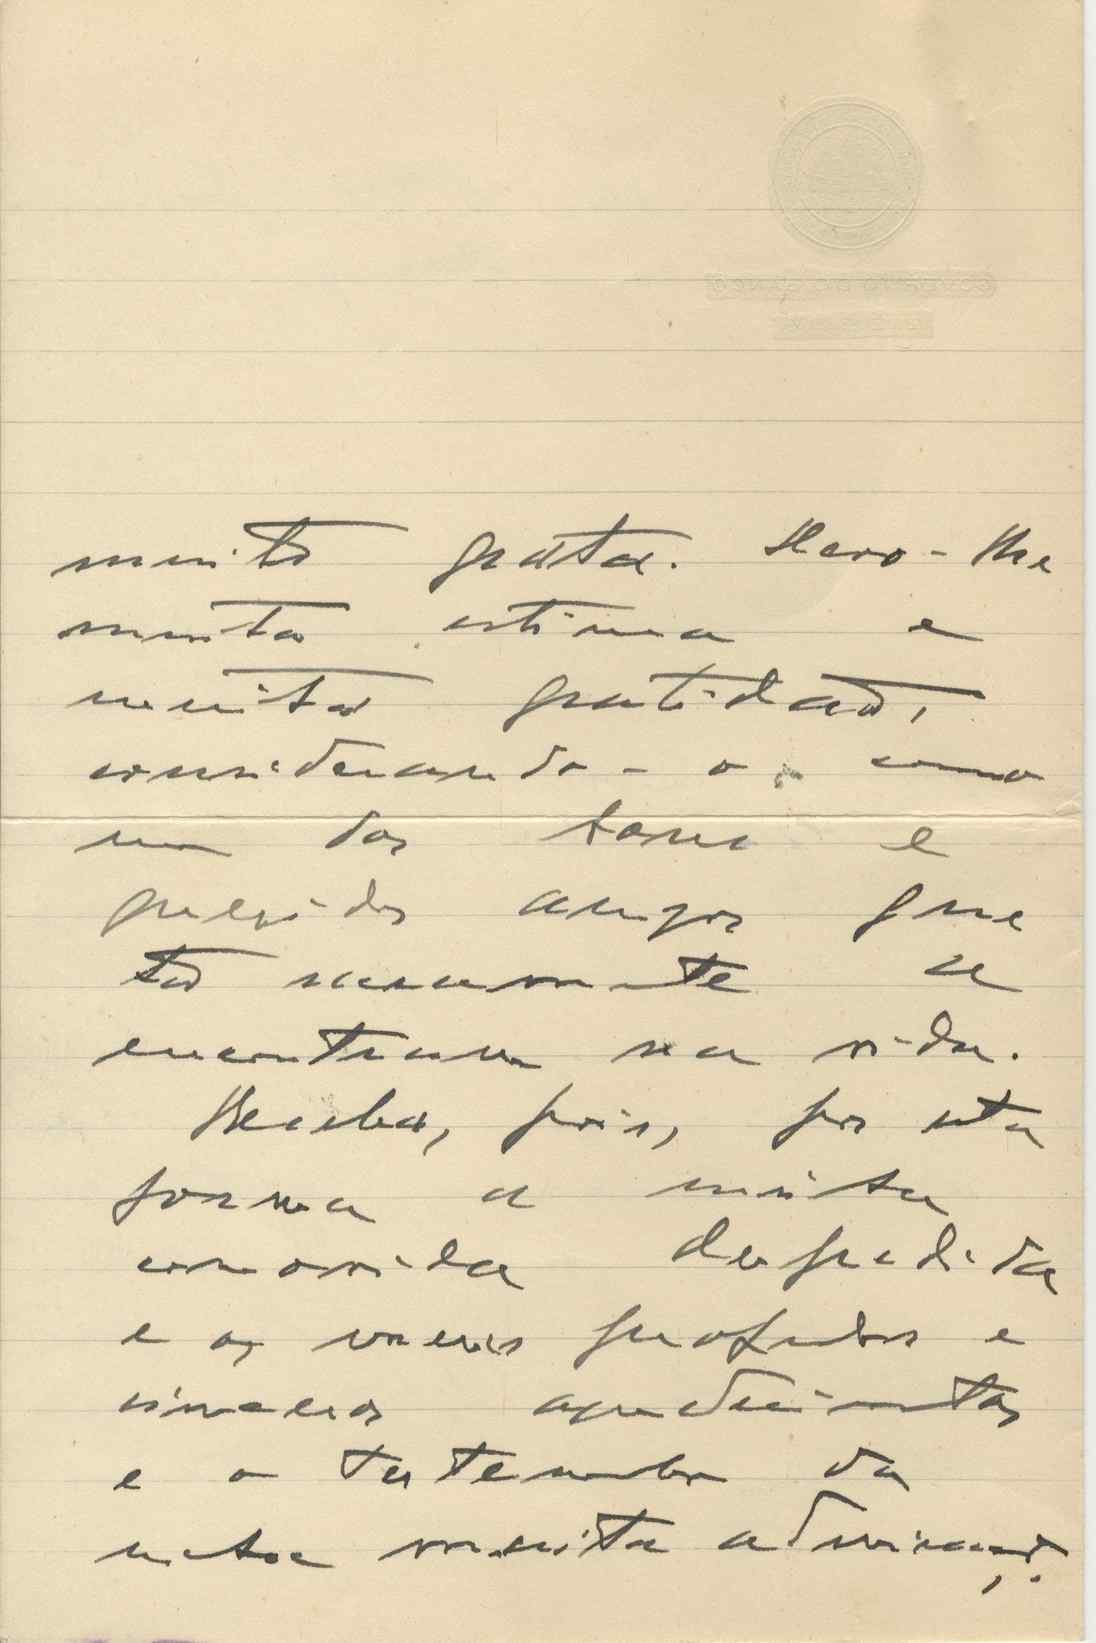 muito grata. Devo-lhe
muita estima e
muita gratidão,
considerando-o como
um dos bons e
queridos amigos que
tão raramente se
encontram na vida.
Receba, pois, por esta
forma a minha
comovida despedida
e os meus profundos e
sinceros agradecimentos
e o testemunho da
minha muita admiração.